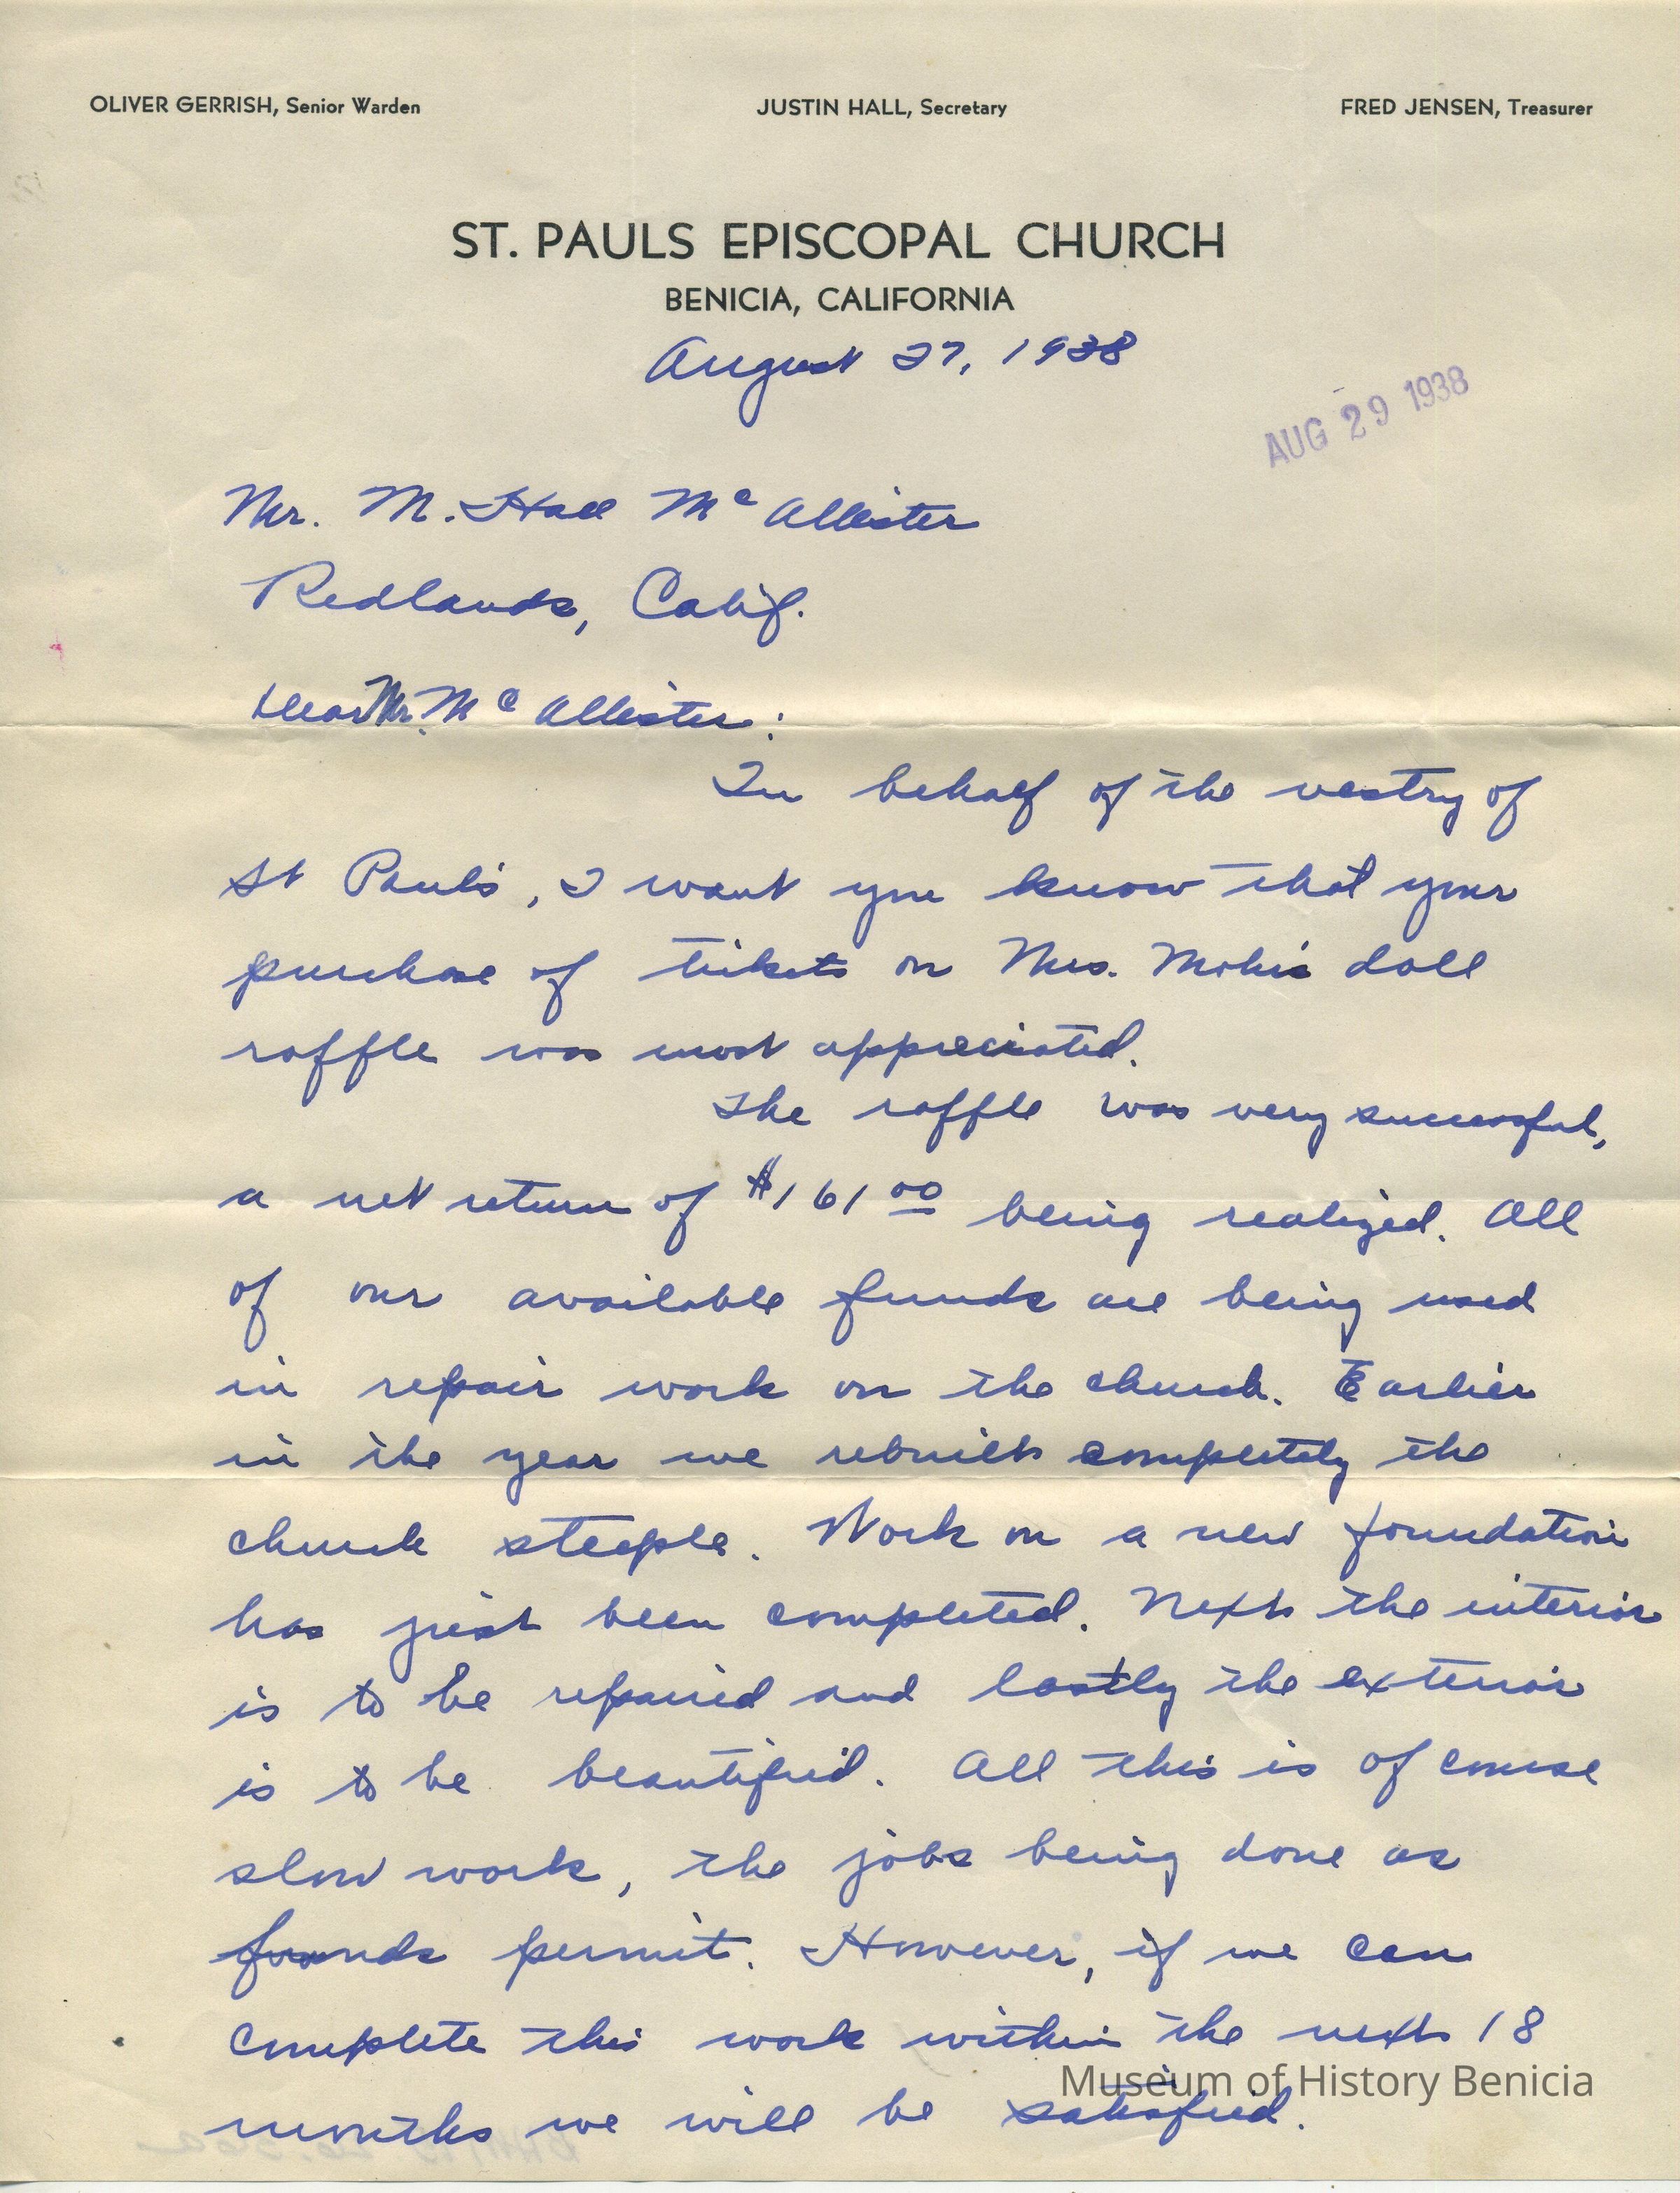 OLIVER GERRISH, Senior Warden JUSTIN HALL, Secretary FRED JENSEN, Treasurer
ST. PAULS EPISCOPAL CHURCH
BENICIA, CALIFORNIA
August 27, 1938
AUG 29 1938
Mr. M. Hall McAllister
Redlands, Calif.
Dear Mr. McAllister:
In behalf of the vestry of
St Paul's, I want you know that your
purchase of tickets on Mrs. doll
raffle was most appreciated.
The raffle was very successful,
a net return of $161 00 being realized. All
of our available funds are being used
in repair work on the church. Earlier
in the year we rebuilt completely the
church steeple. Work on a new foundation
has just been completed. Next the interior
is to be repaired and lastly the exterior
is to be beautified. All this is of course
slow work, the jobs being done as
funds permit. However, if we can
complete this work within the next 18
months we will be satisfied.
Museum of History Benicia